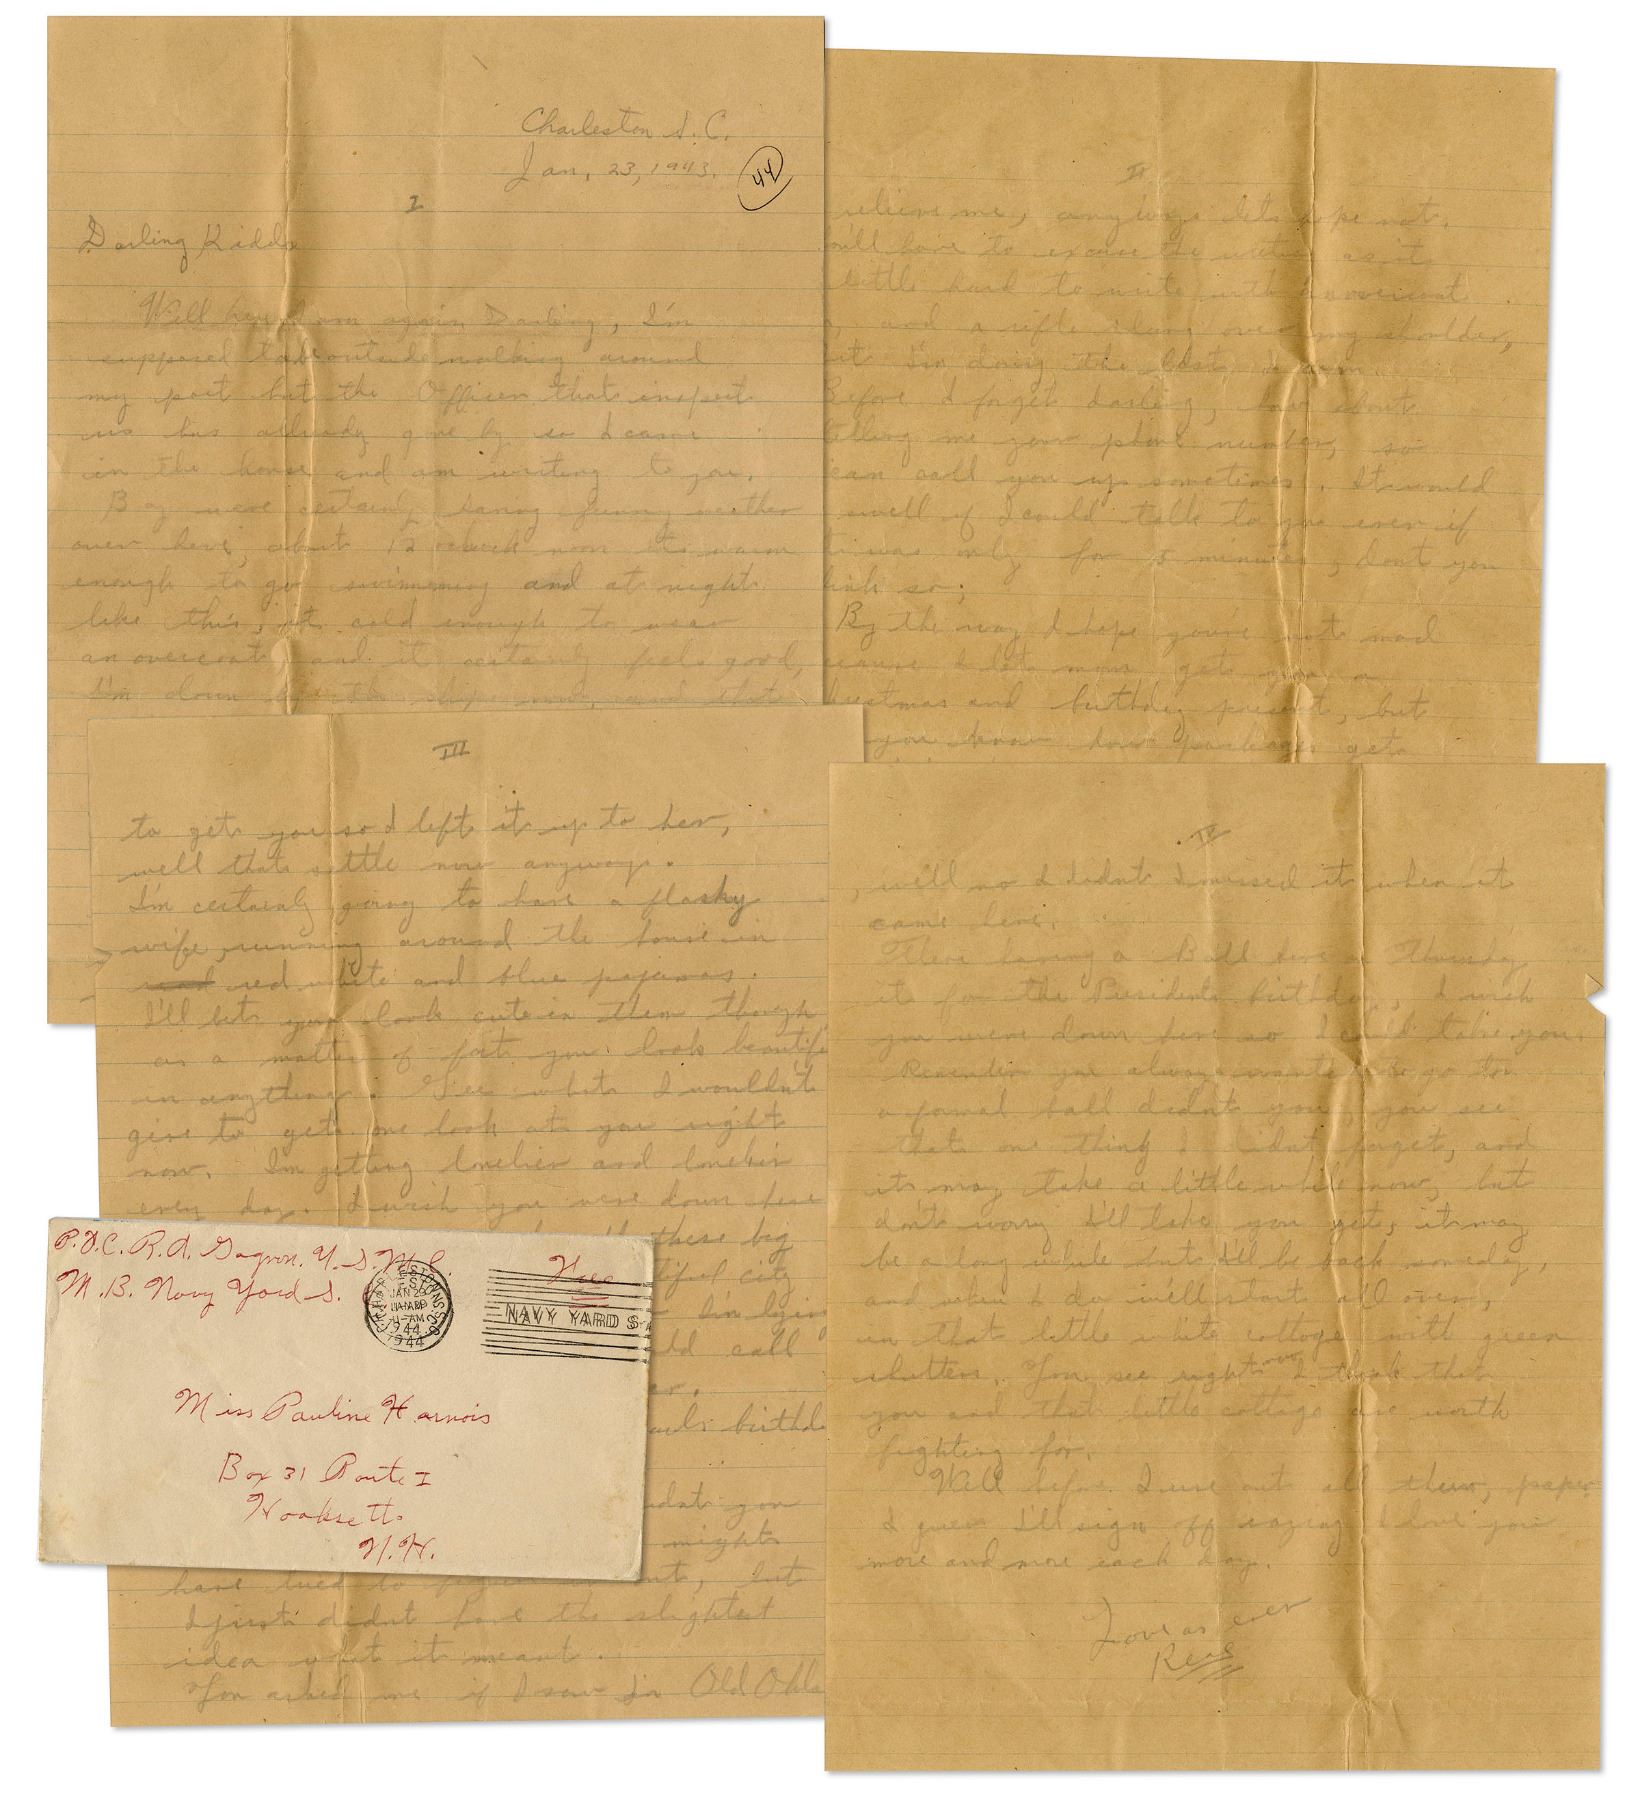 Charleston S. C.
Jan. 23, 1943.
44
I
Darling Kiddo
Well here I am again Darling, I'm
supposed to be outside walking around
my post but the Officer that inspects
us has allready gone by so I came
in the house and am writing to you.
Boy were certainly having funny weather
over here, about 12 oclock noon its warm
enough to go swimming and at night
like this, its cold enough to wear
an overcoat, and it certainly feels good,
I'm down by the ships now, and that
II
relieve me, anyways lets hope not.
You'll have to excuse the writing as it
little hard to write with an overcoat
, and a rifle slung over my shoulder,
but I'm doing the best I can.
Before I forget darling, how about
telling me your phone number, so
can call you up sometimes. It would
swell if I could talk to you even if
it was only for 5 minutes, dont you
think so;
By the way I hope you're not mad
because I let mom get you a
Christmas and birthday present, but
you know how packages get
III
to get you so I left it up to her,
well thats settle now anyways.
I'm certainly going to have a flashy
wife, running around the house in
red white and blue pajamas.
I'll bet you look cute in them though
as a matter of fact you look beautiful
in anything. Gee what I wouldn't
give to get one look at you right
now. I'm getting lonelier and lonelier
every day. I wish you were down here
these big
city
I'm lying
call
er.
birthd
didnt you
might
have tried to figure it out, but
I just didnt have the slightest
idea what it meant.
You asked me if I saw In Old Okla
IV
, well no I didnt I missed it when it
came here.
There having a Ball here on Thursday
its for the Presidents birthday, I wish
you were down here so I could take you.
Remember you always wanted to go to
a formal ball didnt you, you see
thats one thing I didnt forget, and
it may take a little while now, but
don't worry I'll take you yet, it may
be a long while but I'll be back someday,
and when I do we'll start all over,
in that little white cottage with green
shutters. You see right now I think that
you and that little cottage are worth
fighting for.
Well before I use out all them paper
I guess I'll sign off saying I love you
more and more each day.
Love as ever
Rene
P.F.C. R.A. Gagnon. U.S.M.C.
M.B. Navy Yard S.C.
Free
CHARLESTON S.C.
JAN 29
11-AM
1944
NAVY YARD STA
Miss Pauline Harnois
Box 31 Route I
Hooksett
N.H.